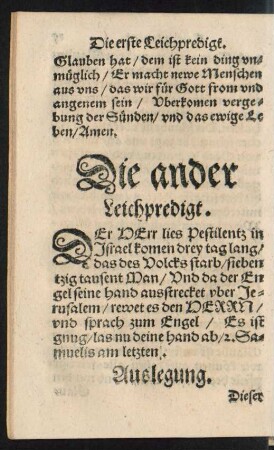 Die erste Leichpredigt.
Glauben hat / dem ist kein ding vn-
müglich / Er macht newe Menschen
aus vns / das wir für Gott from vnd
angenem sein / Vberkomen verge-
bung der Sünden / vnd das ewige Le
ben / Amen.
Die ander
Leichpredigt.
DEr HErr lies Pestilentz in
Jsrael komen drey tag lang /
das des Volcks starb / sieben
tzig tausent Man / Vnd da der En
gel seine hand ausstrecket vber Je-
rusalem / rewet es den HERRN /
vnd sprach zum Engel / Es ist
gnug / las nu deine hand ab / 2. Sa-
muelis am letzten.
Auslegung.
Dieser